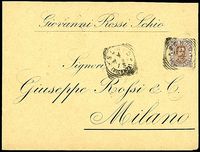 Giovanni Rossi Schio
Signori
Giuseppe Rossi & C.
Milano